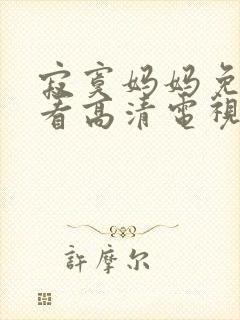 寂寞妈妈免
看高清电视
許摩尔